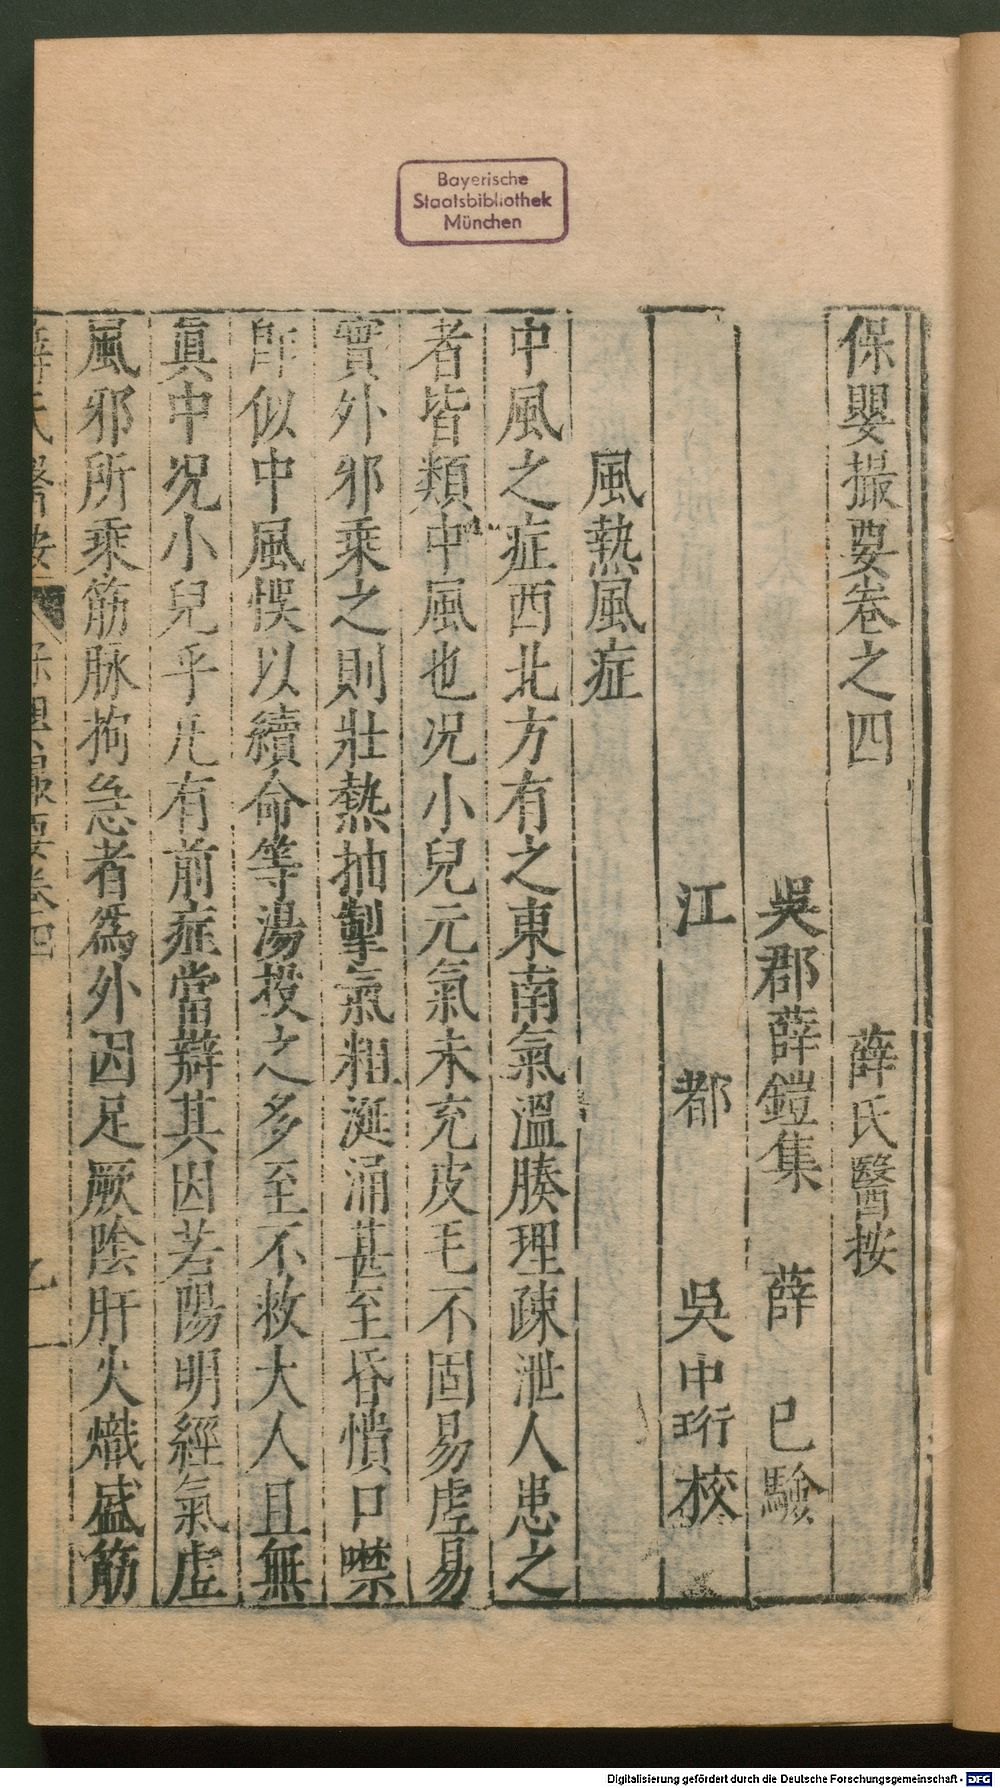 Bayerische
Staatsbibliothek
München
保嬰撮要卷之四　薛氏醫按
吳郡薛鎧集　薛　已　驗
江　都　吳中珩校
風熱風症
中風之症西北方有之東南氣溫腠理疎泄人患之
者皆類中風也况小兒元氣未充皮毛不固易虛易
實外邪乘之則壯熱抽掣氣粗涎涌甚至昏憒口噤
卽似中風悞以續命等湯投之多至不救大人且無
眞中况小兒乎凡有前症當辯其因若陽明經氣虛
風邪所乘筋脉拘急者爲外因足厥陰肝火熾盛筋
薛氏醫按　保嬰撮要卷四　一
Digitalisierung gefördert durch die Deutsche Forschungsgemeinschaft - DFG